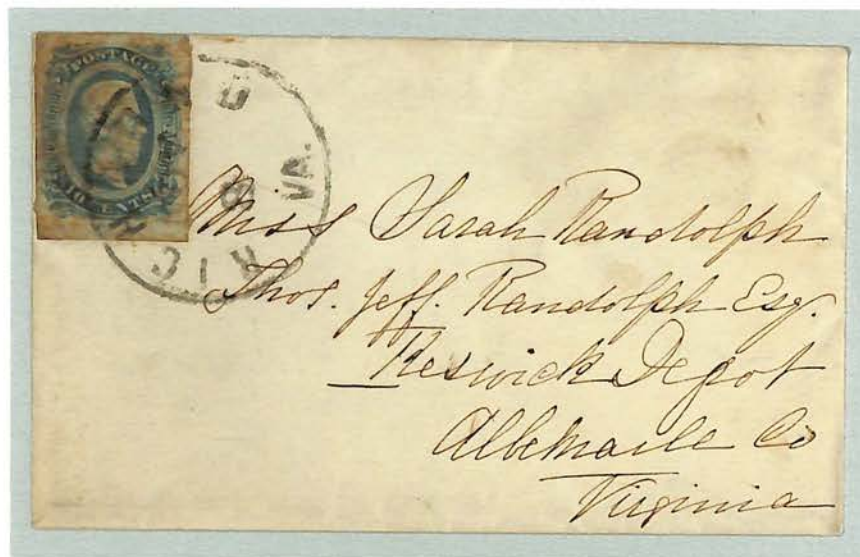 POSTAGE
TEN CENTS
RICH D VA.
Miss Sarah Randolph
Thos. Jeff. Randolph Esq.
Keswick Depot
Albemarle Co
Virginia